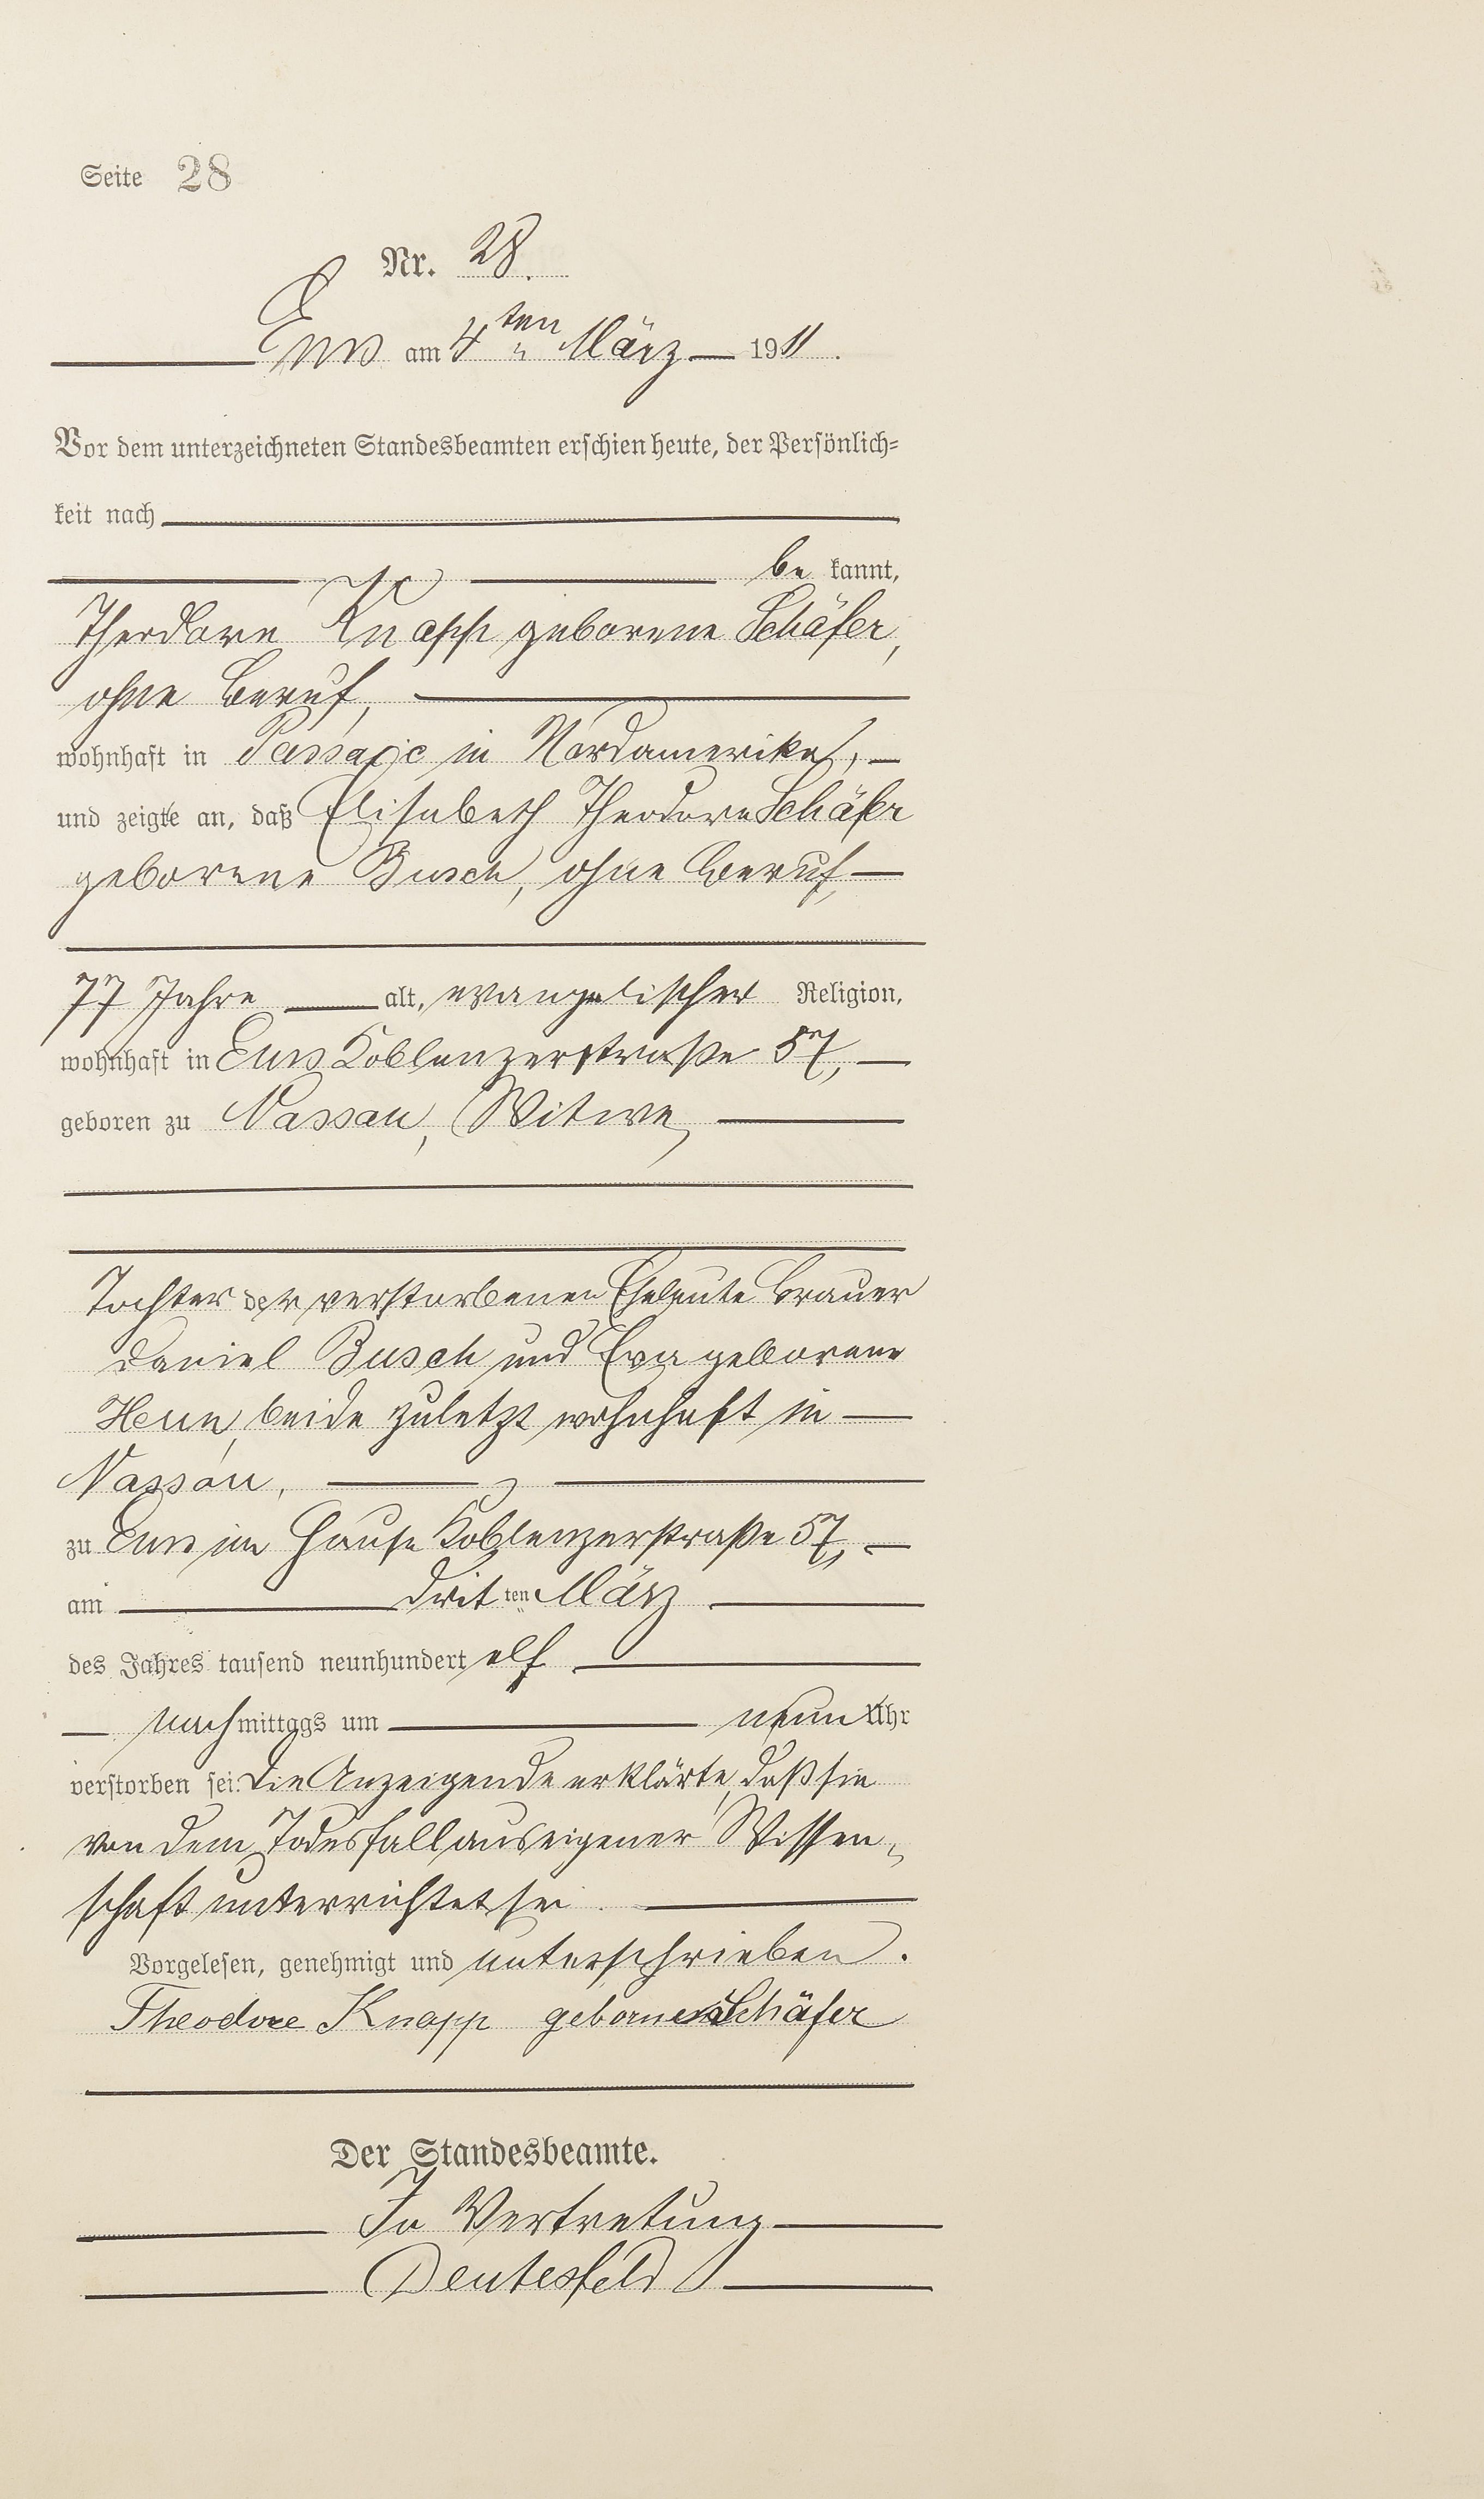 Seite 28
Nr. 28.
Ems am 4ten März 1911.
Vor dem unterzeichneten Standesbeamten erschien heute, der Persönlich-
keit nach
be kannt,
Theodore Knapp geborene Schäfer,
ohne Beruf,
wohnhaft in Passaic in Nordamerika,
und zeigte an, daß Elisabeth Theodore Schäfer
geborene Busch, ohne Beruf,
77 Jahre alt, evangelischer Religion,
wohnhaft in Ems Koblenzerstraße 57,
geboren zu Nassau, Witwe,
Tochter der verstorbenen Eheleute Brauer
Daniel Busch und Eva geborene
beide zuletzt wohnhaft in
Nassau,
zu Ems im Hause Koblenzerstraße 57,
am dritten März
des Jahres tausend neunhundert elf
nachmittags um neun Uhr
verstorben sei. Die Anzeigende erklärte, daß sie
von dem Todesfall aus eigener Wissen-
schaft unterrichtet sei.
Vorgelesen, genehmigt und unterschrieben.
Theodore Knapp geborne Schäfer
Der Standesbeamte.
In Vertretung
Deutesfeld